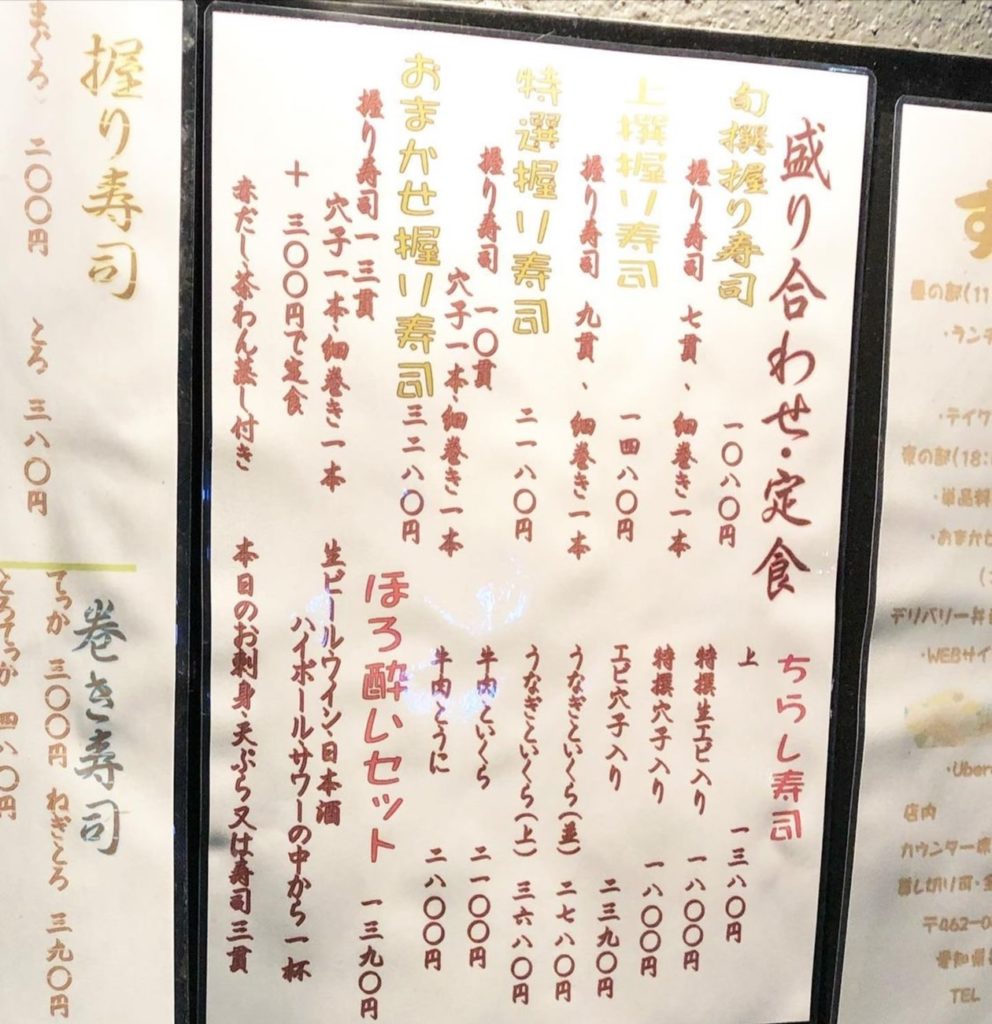 盛り合わせ・定食
旬撰握り寿司
一〇八〇円
握り寿司 七貫、細巻き一本
上撰握り寿司
一四八〇円
握り寿司 九貫、細巻き一本
特選握り寿司
二一八〇円
握り寿司 一〇貫
穴子一本・細巻き一本
おまかせ握り寿司
三二八〇円
握り寿司一三貫
穴子一本・細巻き一本
+三〇〇円で定食
赤だし・茶わん蒸し付き
ちらし寿司
上 一三八〇円
特撰生エビ入り 一八〇〇円
特撰穴子入り 一八〇〇円
エビ穴子入り 二三九〇円
うなぎといくら(並) 二七八〇円
うなぎといくら(上) 三六八〇円
牛肉といくら 二一〇〇円
牛肉とうに 二八〇〇円
ほろ酔いセット 一三九〇円
生ビール・ワイン・日本酒
ハイボール・サワーの中から一杯
本日のお刺身・天ぷら又は寿司三貫
握り寿司
まぐろ 二〇〇円 とろ 三八〇円
巻き寿司
てっか 三〇〇円 ねぎとろ 三九〇円
四八〇円
す
昼の部(11
・ランチ
・テイク
夜の部(18:
・単品料
・おまかせ
デリバリー弁当
・WEBサイ
・Uber
店内
カウンター席
貸し切り可・全
〒462-0
愛知県
TEL